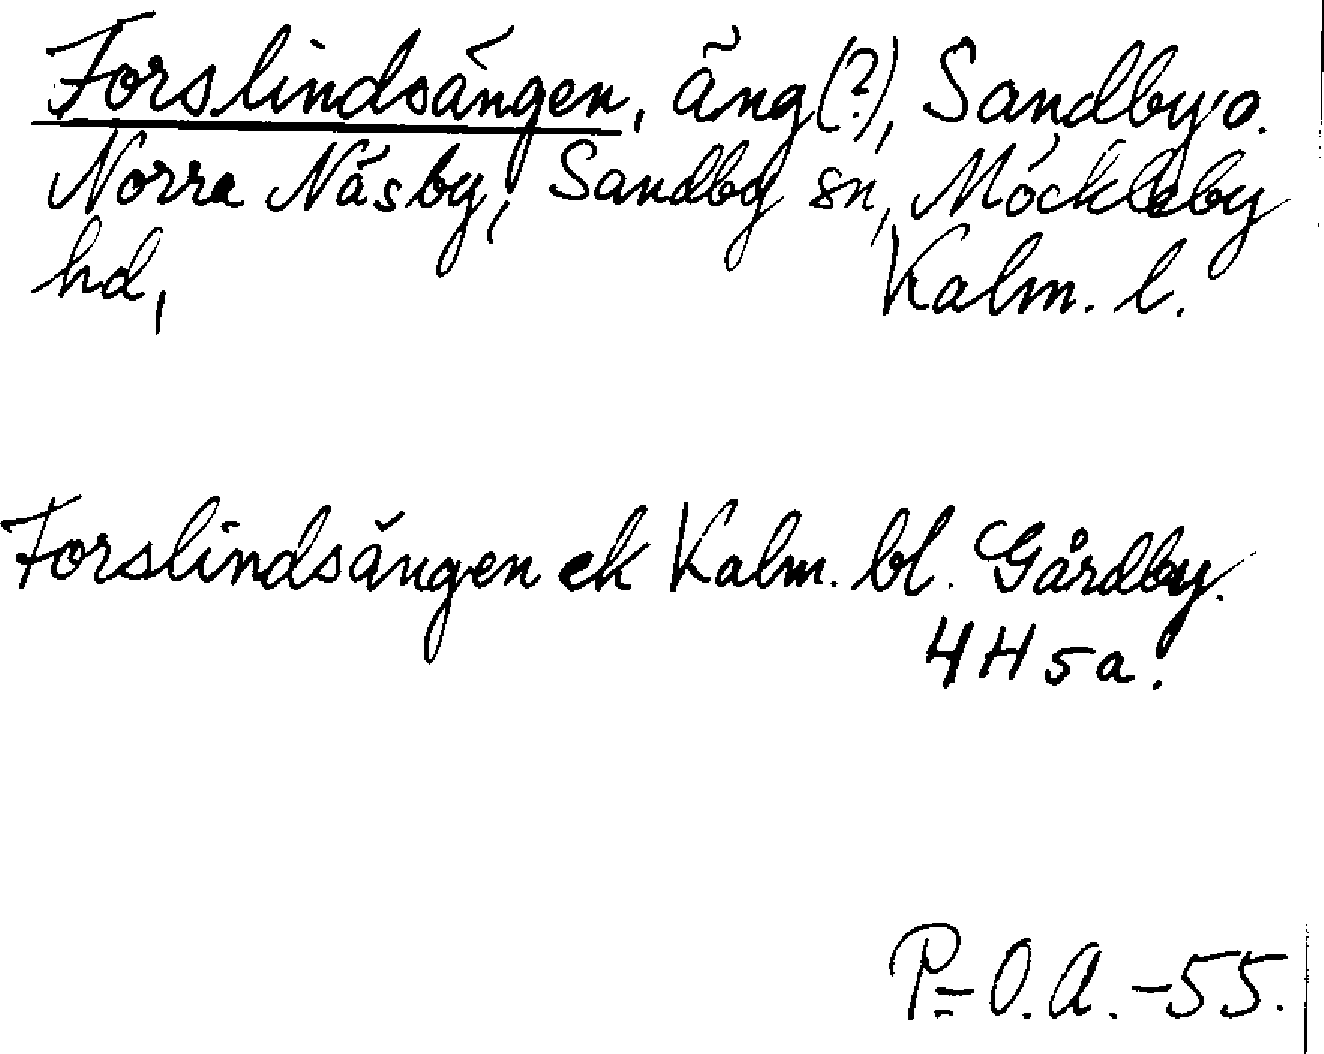 Forslindsängen, äng(?), Sandby o.
Norra Näsby, Sandby sn, Möckleby
hd, Kalm. l.
Forslindsängen ek Kalm. bl. Gårdby.
4H5a.
P=O.A.-55.